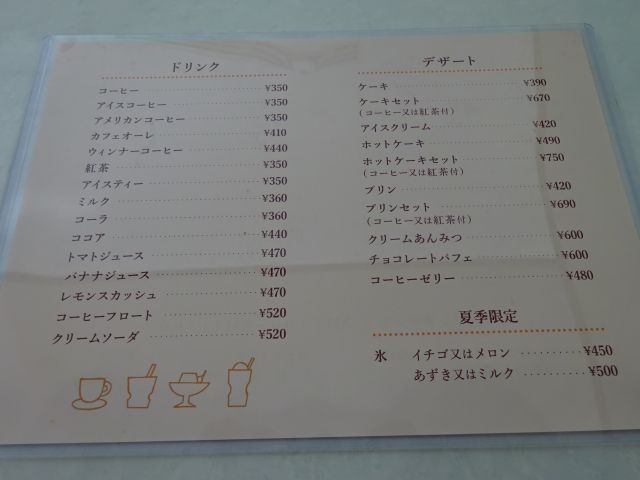 ドリンク
コーヒー ¥350
アイスコーヒー ¥350
アメリカンコーヒー ¥350
カフェオーレ ¥410
ウィンナーコーヒー ¥440
紅茶 ¥350
アイスティー ¥350
ミルク ¥360
コーラ ¥360
ココア ¥440
トマトジュース ¥470
バナナジュース ¥470
レモンスカッシュ ¥470
コーヒーフロート ¥520
クリームソーダ ¥520
デザート
ケーキ ¥390
ケーキセット ¥670
(コーヒー又は紅茶付)
アイスクリーム ¥420
ホットケーキ ¥490
ホットケーキセット ¥750
(コーヒー又は紅茶付)
プリン ¥420
プリンセット ¥690
(コーヒー又は紅茶付)
クリームあんみつ ¥600
チョコレートパフェ ¥600
コーヒーゼリー ¥480
夏季限定
氷 イチゴ又はメロン ¥450
あずき又はミルク ¥500